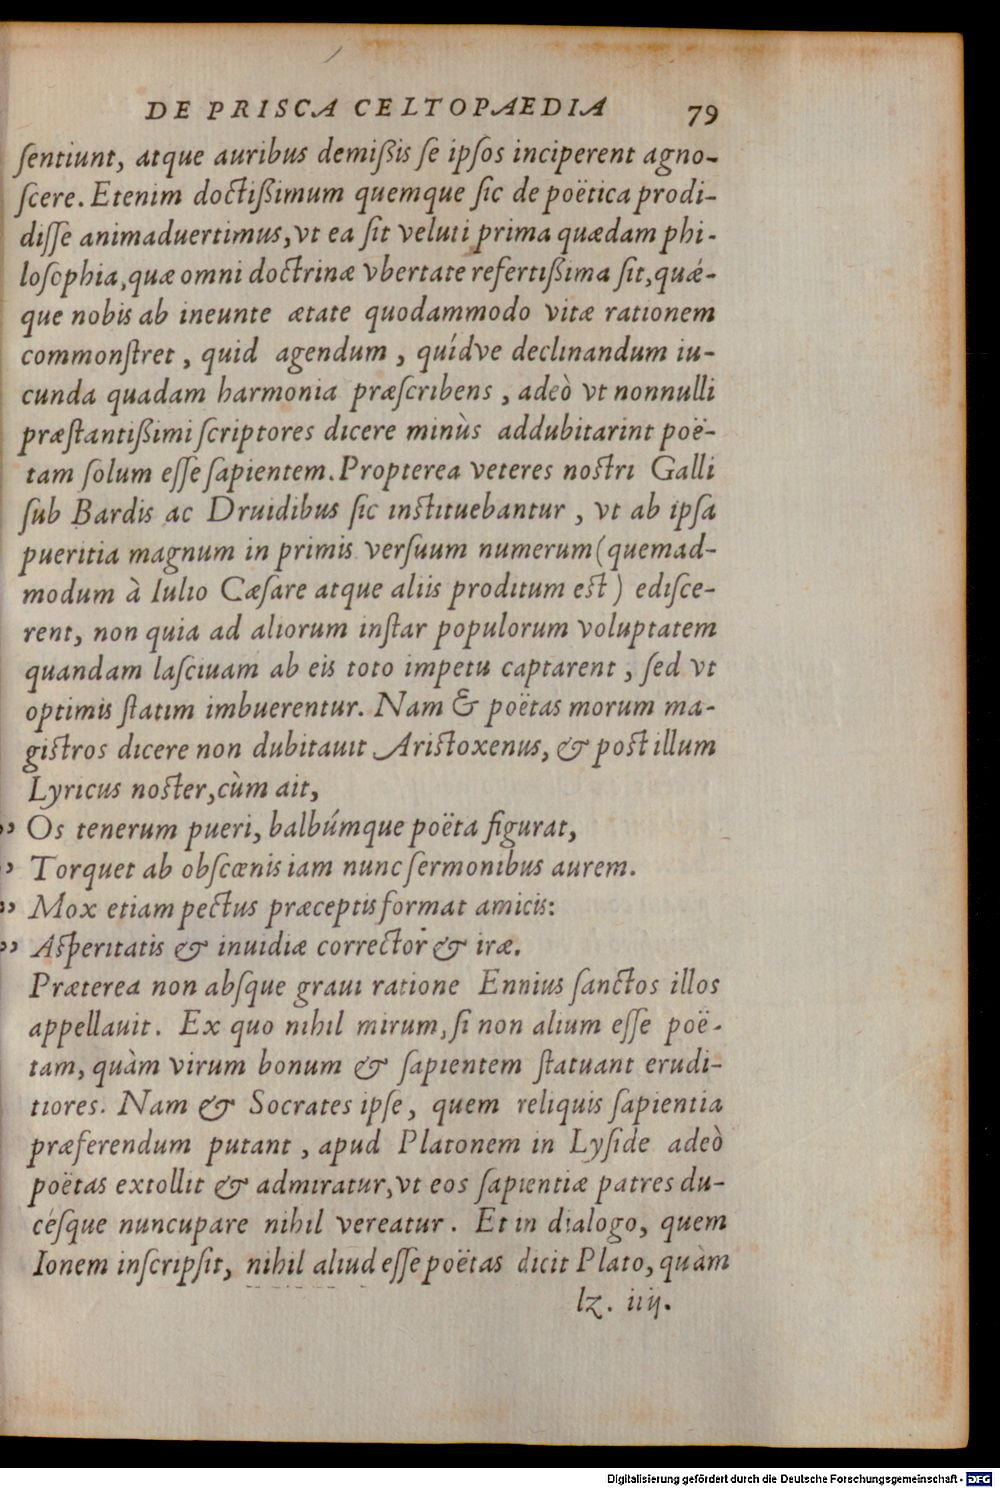 DE PRISCA CELTOPAEDIA 79
ſentiunt, atque auribus demißis ſe ipſos inciperent agno-
ſcere. Etenim doctißimum quemque ſic de poëtica prodi-
diſſe animaduertimus, vt ea ſit veluti prima quædam phi-
loſophia, quæ omni doctrinæ vbertate refertißima ſit, quǽ-
que nobis ab ineunte ætate quodammodo vitæ rationem
commonſtret, quid agendum, quídve declinandum iu-
cunda quadam harmonia præſcribens, adeò vt nonnulli
præſtantißimi ſcriptores dicere minùs addubitarint poë-
tam ſolum eſſe ſapientem. Propterea veteres noſtri Galli
ſub Bardis ac Druidibus ſic inſtituebantur, vt ab ipſa
pueritia magnum in primis verſuum numerum (quemad-
modum à Iulio Cæſare atque aliis proditum eſt) ediſce-
rent, non quia ad aliorum inſtar populorum voluptatem
quandam laſciuam ab eis toto impetu captarent, ſed vt
optimis ſtatim imbuerentur. Nam & poëtas morum ma-
giſtros dicere non dubitauit Ariſtoxenus, & poſt illum
Lyricus noſter, cùm ait,
›› Os tenerum pueri, balbúmque poëta figurat,
› Torquet ab obſcœnis iam nunc ſermonibus aurem.
›› Mox etiam pectus præceptis format amicis:
›› Aſperitatis & inuidiæ corrector & iræ.
Præterea non abſque graui ratione Ennius ſanctos illos
appellauit. Ex quo nihil mirum, ſi non alium eſſe poë-
tam, quàm virum bonum & ſapientem ſtatuant erudi-
tiores. Nam & Socrates ipſe, quem reliquis ſapientia
præferendum putant, apud Platonem in Lyſide adeò
poëtas extollit & admiratur, vt eos ſapientiæ patres du-
céſque nuncupare nihil vereatur. Et in dialogo, quem
Ionem inſcripſit, nihil aliud eſſe poëtas dicit Plato, quàm
lz. iiij.
Digitalisierung gefördert durch die Deutsche Forschungsgemeinschaft - DFG